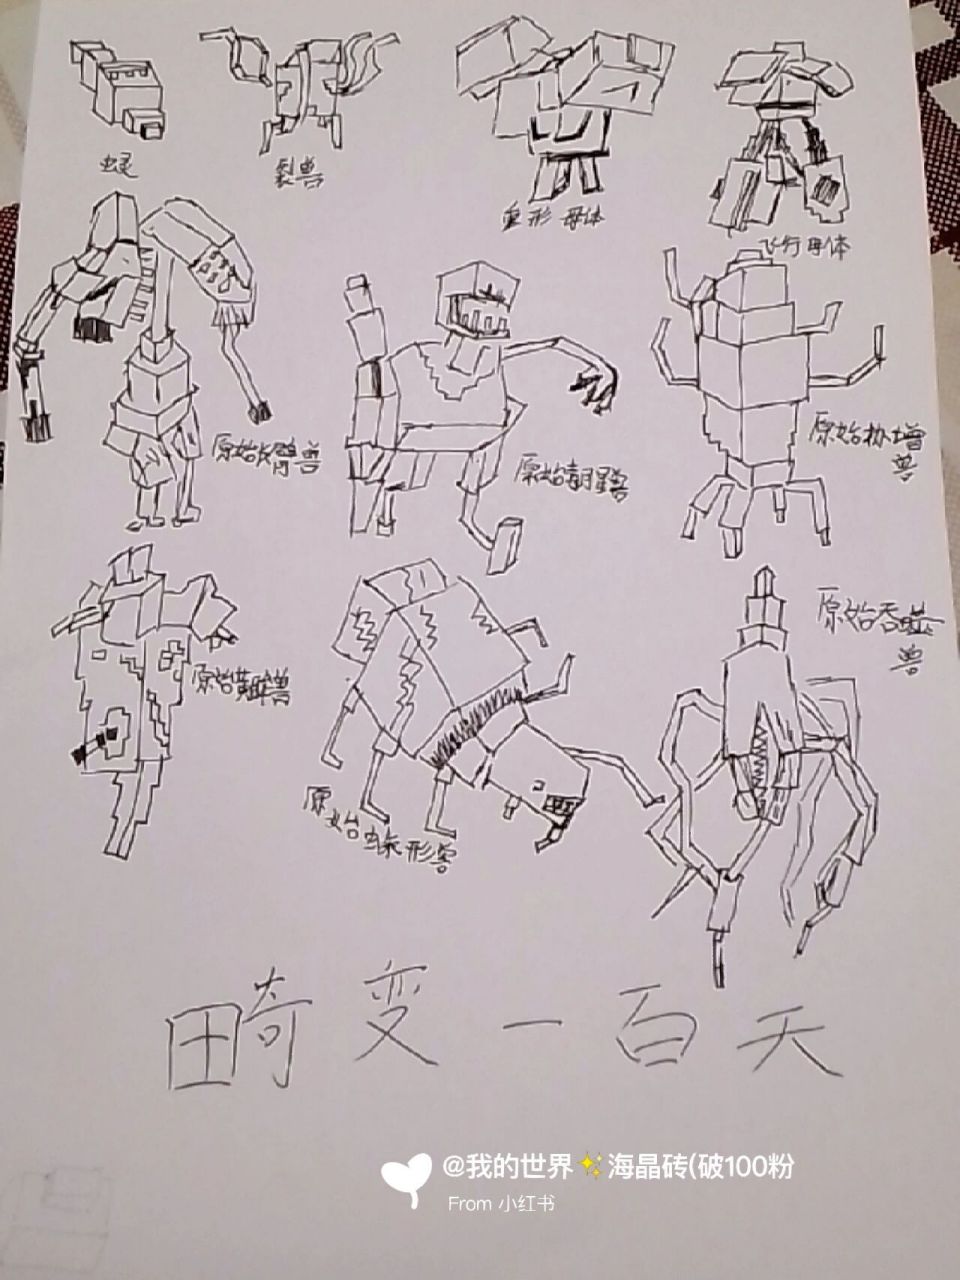 裂兽
重形母体
飞行母体
原始长臂兽
原始
原始
兽
原始
兽
原始吞噬
兽
原始 形兽
畸变一百天
@我的世界✨海晶砖(破100粉
From 小红书